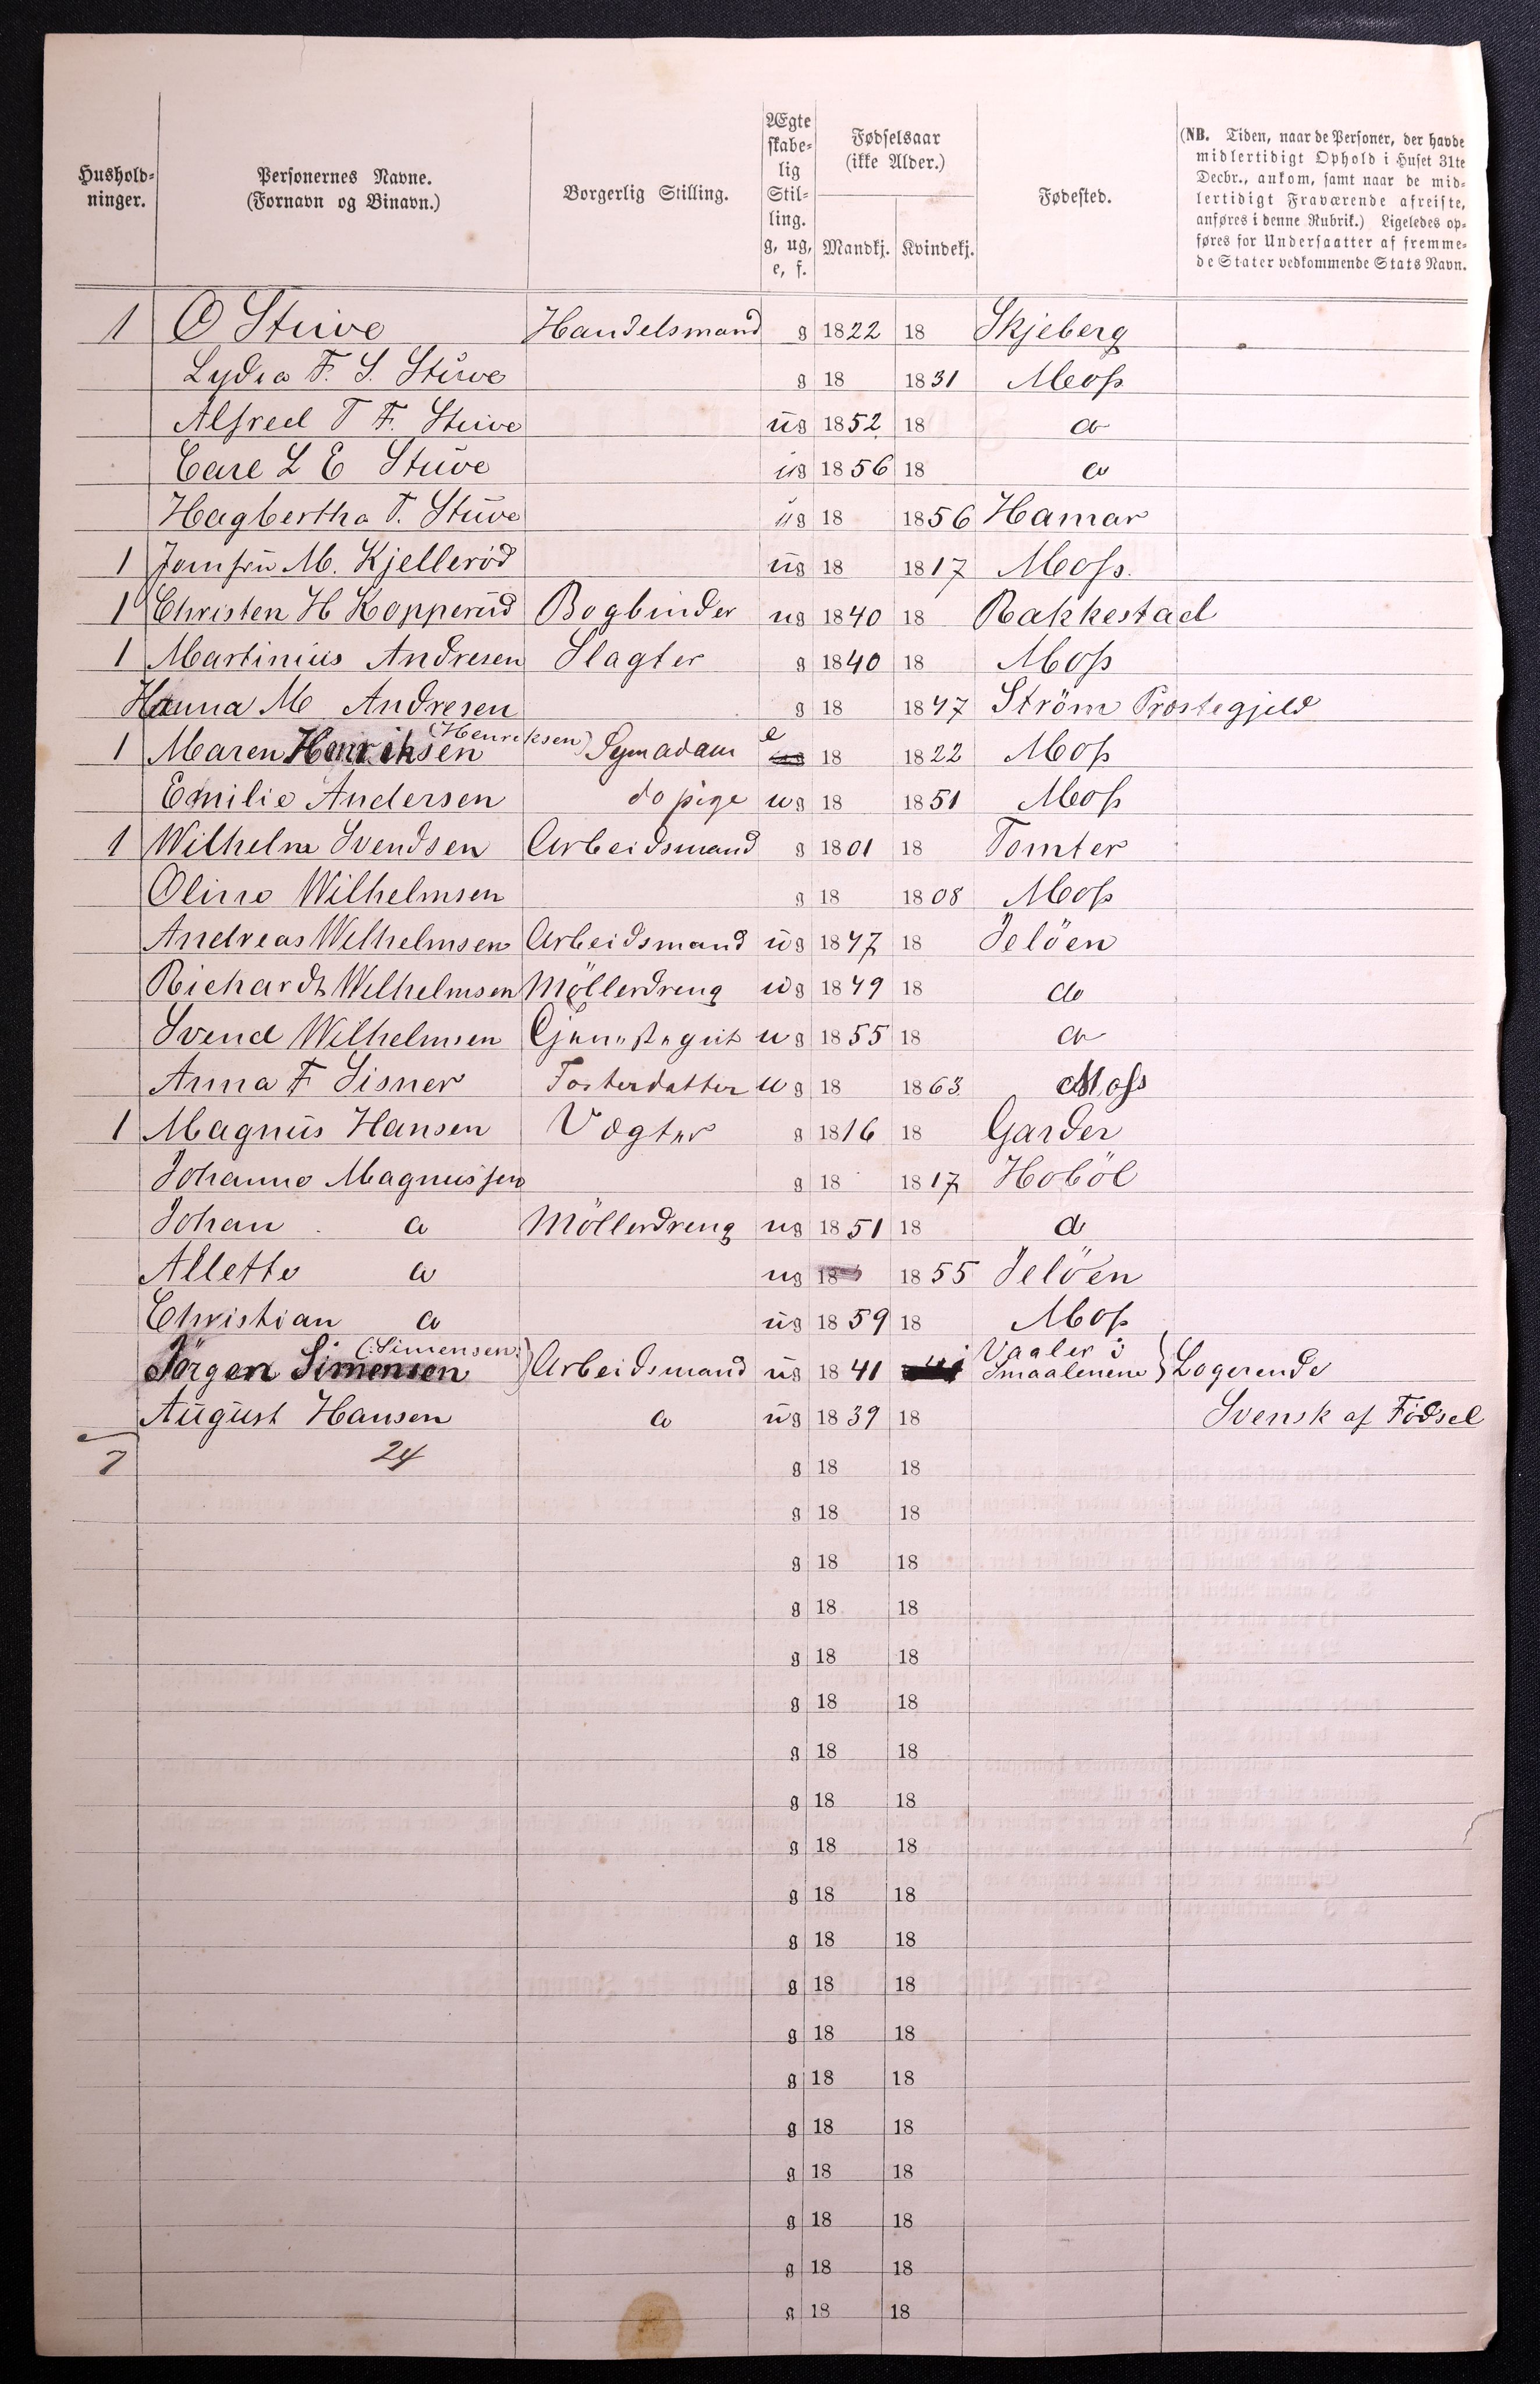 Hushold-
ninger.
Personernes Navne.
(Fornavn og Binavn.)
Borgerlig Stilling.
Ægte
skabe-
lig
Stil-
ling.
g, ug,
e, f.
Fødselsaar
(ikke Alder.)
Mandkj. Kvindekj.
Fødested.
(NB. Tiden, naar de Personer, der havde
midlertidigt Ophold i Huset 31te
Decbr., ankom, samt naar de mid-
lertidigt Fraværende afreiste,
anføres i denne Rubrik.) Ligeledes op-
føres for Undersaatter af fremme-
de Stater vedkommende Stats Navn.
1 O Stüve Handelsmand g 1822 18 Skjeberg
Lydia F. S. Stüve g 18 1831 Moss
Alfred T F. Stüve üg 1852 18 do
Carl L E Stüve üg 1856 18 do
Hagbertha T. Stüve üg 18 1856 Hamar
1 Jomfrü M. Kjelleröd üg 18 1817 Moss.
1 Christen H Kopperüd Bogbinder ug 1840 18 Rakkestad
1 Martinius Andresen Slagter g 1840 18 Moss
Hanna M Andresen g 18 1847 Ström Præstegjeld
(Henriksen)
1 Maren Henriksen Symadam e 18 1822 Moss
Emilie Andersen do pige ug 18 1851 Moss
1 Wilhelm Svendsen Arbeidsmand g 1801 18 Tomter
Oline Wilhelmsen g 18 1808 Moss
Andreas Wilhelmsen Arbeidsmand üg 1847 18 Jelöen
Richardt Wilhelmsen Möllerdreng ug 1849 18 do
Svend Wilhelmsen ug 1855 18 do
Anna F Sisner Fosterdatter ug 18 1863 Moss
1 Magnüs Hansen Vægter g 1816 18 Garder
Johanne Magnussen g 18 1817 Hoböl
Johan do Möllerdreng ug 1851 18 do
Allette do ug 18 1855 Jelöen
Christian do üg 1859 18 Moss
(:Simensen:) Vaaler i
Jörgen Simensen Arbeidsmand üg 1841 Smaalenene } Logerende
Aügüst Hansen do üg 1839 18 Svensk af Födsel
7 24 g 18 18
g 18 18
g 18 18
g 18 18
g 18 18
g 18 18
g 18 18
g 18 18
g 18 18
g 18 18
g 18 18
g 18 18
g 18 18
g 18 18
g 18 18
g 18 18
g 18 18
g 18 18
g 18 18